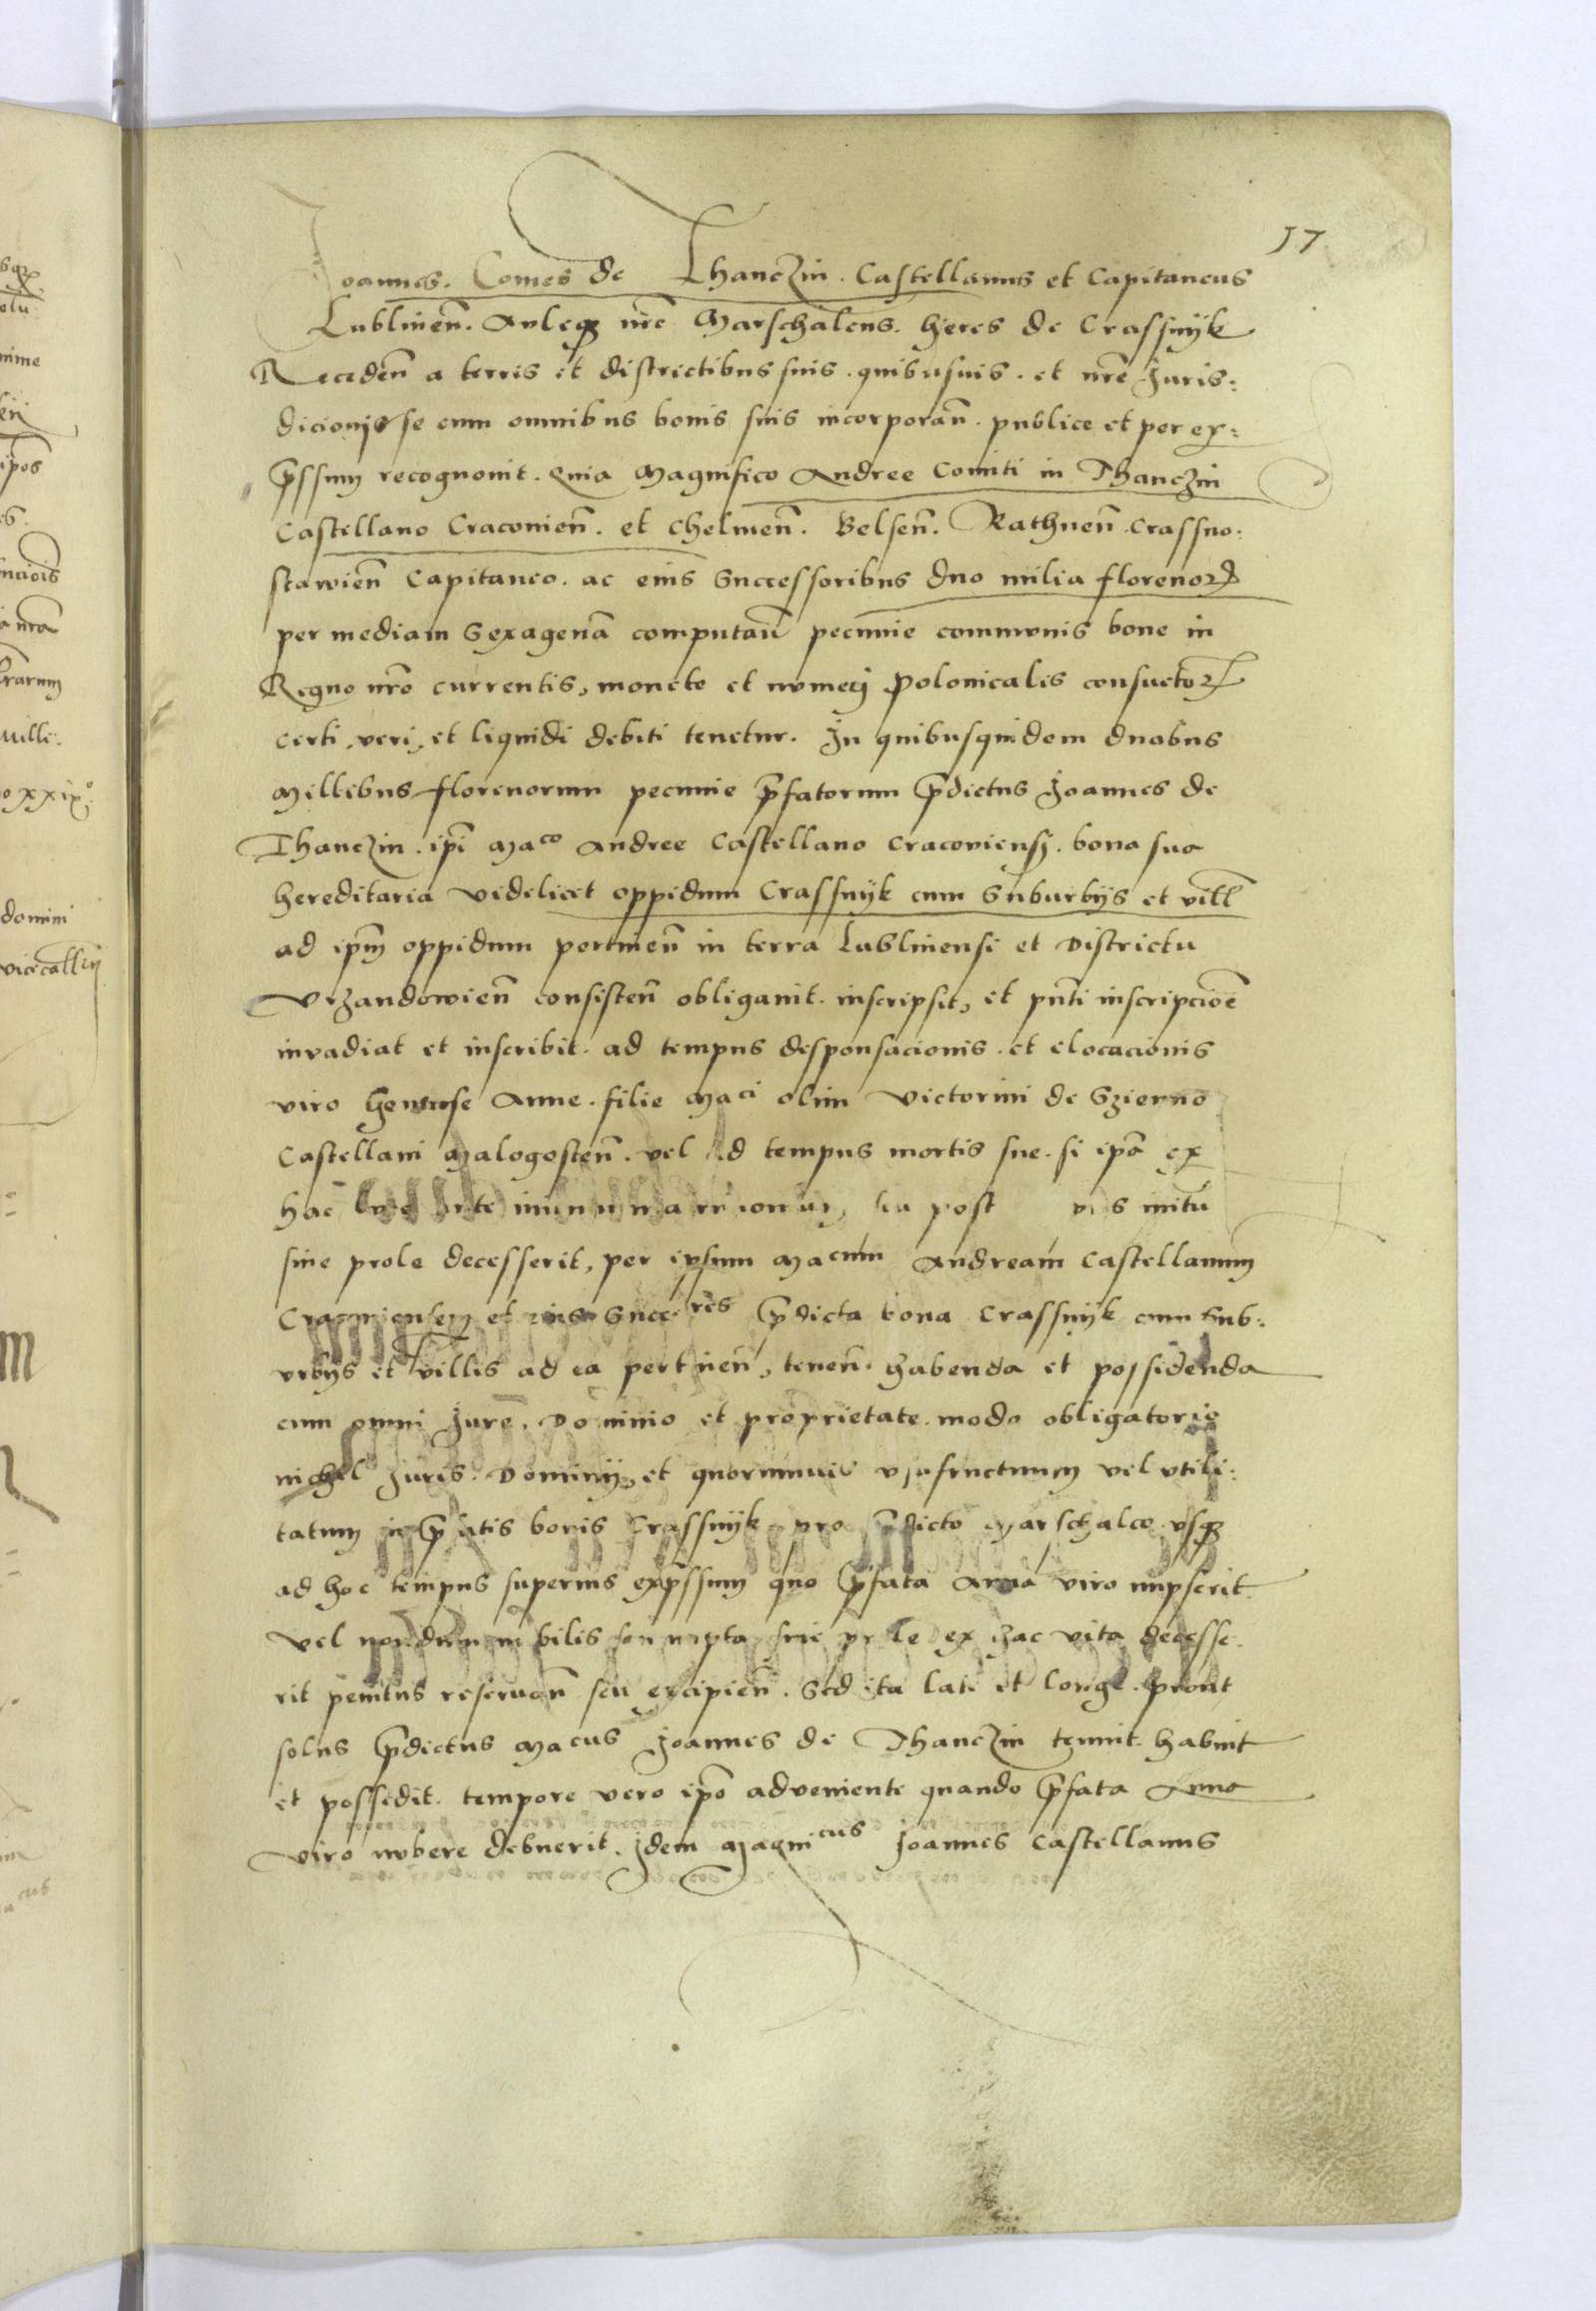 17
Joannes. Comes de Thanczin. Castellanus et Capitaneus
Lublinen̄. Auleqʒ nr̄e Marschalcus. heres de Crassnyk
Receden̄ a terris et districtibus suis. quibusuis. et nr̄e Juris:
dicionis se cum omnibus bonis suis incorporan̄. publice et per ex:
p̄ssum recognouit. Quia Magnifico Andree Comiti in Thanczin
Castellano Cracouien̄. et Chelmen̄. Belsen̄. Rathnen̄. Crassno:
stawien̄ Capitaneo. ac eius Successoribus duo milia florenoꝝ
per mediam Sexagenā computan̄ pecunie communis bone in
Regno nr̄o currentis, monete et numeri Polonicalis consuetoꝝ
certi, veri, et liquidi debiti tenetur. In quibusquidem duobus
Millibus florenorum pecunie p̄fatorum p̄dictus Joannes de
Thanczin. ip̄i Maco Andree Castellano Cracouiensi. bona sua
hereditaria videlicet oppidum Crassnyk cum Suburbijs et vill̄
ad ip̄m oppidum pertinen̄ in terra Lublinensi et Districtu
Vrzandowien̄ consisten̄ obligauit. inscripsit, et pn̄ti inscripcioē
inuadiat et inscribit. ad tempus desponsacionis. et elocacionis
viro Generose Anne. filie Maci olim Victorini de Szienno
Castellani Malogosten̄. vel ad tempus mortis sue. si ip̄a ex
hac post initū
sine prole decesserit, per ipsum Macum Andream Castellanum
Cracouiensem et eius Succres p̄dicta bona Crassnyk cum Sub:
vrbijs et villis ad ea pertinen̄, tenen̄. habenda et possidenda
cum omni Jure. Dominio et proprietate. modo obligatorio
nichil Juris. Dominij, et quorumuis vsufructuum vel vtili:
tatum in p̄fatis bonis Crassnyk pro p̄dicto Marschalco. vsqʒ
ad hoc tempus superius exp̄ssum quo p̄fata Anna viro nupserit
vel nondum nubilis seu nupta sine prole ex hac vita decesse:
rit penitus reseruan̄ seu excipien̄. Sed ita late et longe. prout
solus p̄dictus Macus Joannes de Thanczin tenuit. habuit
et possedit. tempore vero ip̄o adueniente quando p̄fata Anna
viro nubere debuerit. Idem Magnicus Joannes Castellanus